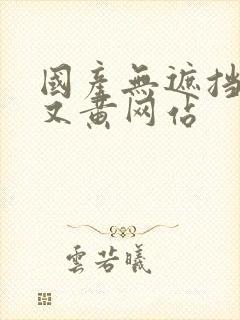 國產無遮挡
又黄网佔
雲若曦